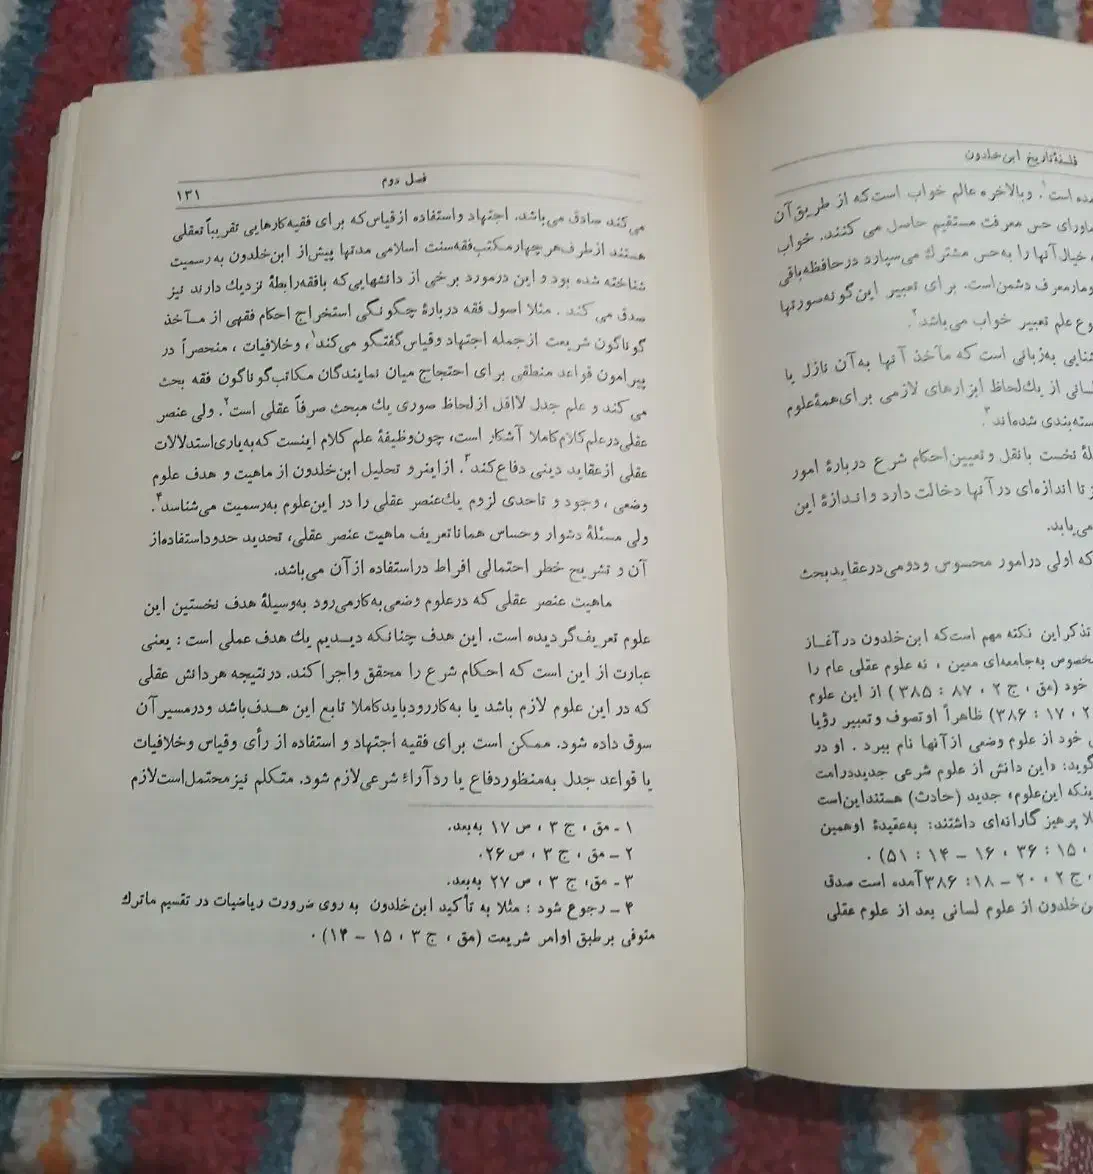 فلسفهٔ تاریخ ابن‌خلدون
است۱. وبالاخره عالم خواب است‌که از طریق‌آن
ماورای حس معرفت مستقیم حاصل می کنند. خواب
خیال‌آنها را به‌حس مشترك می‌سپارد درحافظه‌باقی
ومارمعرف دشمن‌است. برای تعبیر این‌گونه‌صورتها
علم تعبیر خواب می‌باشد۲.
به‌زبانی است که مآخذ آنها به‌آن نازل یا
از یك‌لحاظ ابزارهای لازمی برای‌همهٔ‌علوم
شده‌اند۳.
نخست بانقل وتعیین‌احکام شرع دربارهٔ امور
تا اندازه‌ای درآنها دخالت دارد واندازهٔ این
می‌یابد.
که اولی درامور محسوس ودومی‌درعقایدبحث
تذکراین نکته مهم است‌که ابن‌خلدون درآغـاز
به‌جامعه‌ای معین ، نه علوم عقلی عام را
خود (مق ، ج ۲ ، ۸۷ : ۳۸۵) از این علوم
۲ ، ۱۷ : ۳۸۶) ظاهراً اوتصوف وتعبیر رؤیا
خود از علوم وضعی ازآنها نام ببرد . او در
«این دانش از علوم شرعی جدیددرامت
این‌علوم، جدید (حادث) هستنداین‌است
پرهیز گارانه‌ای داشتند: به‌عقیدهٔ اوهمین
۱۵ : ۳۶ ، ۱۶ – ۱۴ : ۵۱) .
ج ۲ ، ۲۰ – ۱۸: ۳۸۶آمده است صدق
خلدون از علوم لسانی بعد از علوم عقلی
فصل دوم ۱۳۱
می‌کند صادق می‌باشد. اجتهاد واستفاده ازقیاس‌که برای فقیه‌کارهایی تقریباًتعقلی
هستند ازطرف‌هر چهارمکتب‌فقه‌سنت اسلامی مدتها پیش‌از ابن‌خلدون به‌رسمیت
شناخته شده بود و این درمورد برخی از دانشهایی‌که بافقه‌رابطهٔ نزدیك دارند نیز
صدق می کند . مثلا اصول فقه دربارهٔ چگونگی استخراج احکام فقهی از مـآخذ
گوناگون شریعت ازجمله اجتهاد وقیاس‌گفتگو می‌کند۱، وخلافیات ، منحصراً در
پیرامون قواعد منطقی برای احتجاج میان نمایندگان مکاتب‌گوناگون فقه بحث
می کند و علم جدل لااقل ازلحاظ صوری یك مبحث صرفاً عقلی است۲. ولی عنصر
عقلی‌درعلم‌کلام‌کاملا آشکار است، چون‌وظیفهٔ علم کلام اینست که‌به‌یاری‌استدلالات
عقلی ازعقاید دینی دفاع‌کند۳. ازاینرو تحلیل ابن‌خلدون از ماهیت و هدف علوم
وضعی ، وجود و تاحدی لزوم یك‌عنصر عقلی را در این‌علوم به‌رسمیت می‌شناسد۴.
ولی مسئلهٔ دشوار وحساس هماناتعریف ماهیت عنصر عقلی، تحدید حدوداستفاده‌از
آن و تشریح خطر احتمالی افراط دراستفاده ازآن می‌باشد.
ماهیت عنصر عقلی که درعلوم وضعی‌به‌کارمی‌رود به‌وسیلهٔ هدف نخستین این
علوم تعریف‌گردیده است. این هدف چنانکه دیـدیم یك هدف عملی است : یعنی
عبارت از این است که احکام شرع را محقق واجراکند. درنتیجه هردانش عقلی
که در این علوم لازم باشد یا به‌کاررودبایدکاملا تابع این هـدف‌باشد ودرمسیرآن
سوق داده شود. ممکن است برای فقیه اجتهاد و استفاده از رأی وقیاس وخلافیات
یا قواعد جدل به‌منظوردفاع یا ردآراء شرعی‌لازم شود. متکلم نیزمحتمل‌است‌لازم
۱ – مق ، ج ۳ ، ص ۱۷ به‌بعد.
۲ – مق ، ج ۳ ، ص ۲۶.
۳ – مق، ج ۳ ، ص ۲۷ به‌بعد.
۴ – رجوع شود : مثلا به تأکید ابن‌خلدون به روی ضرورت ریاضیات در تقسیم ماترك
متوفی برطبق اوامر شریعت (مق ، ج ۳ ، ۱۵ – ۱۴) .